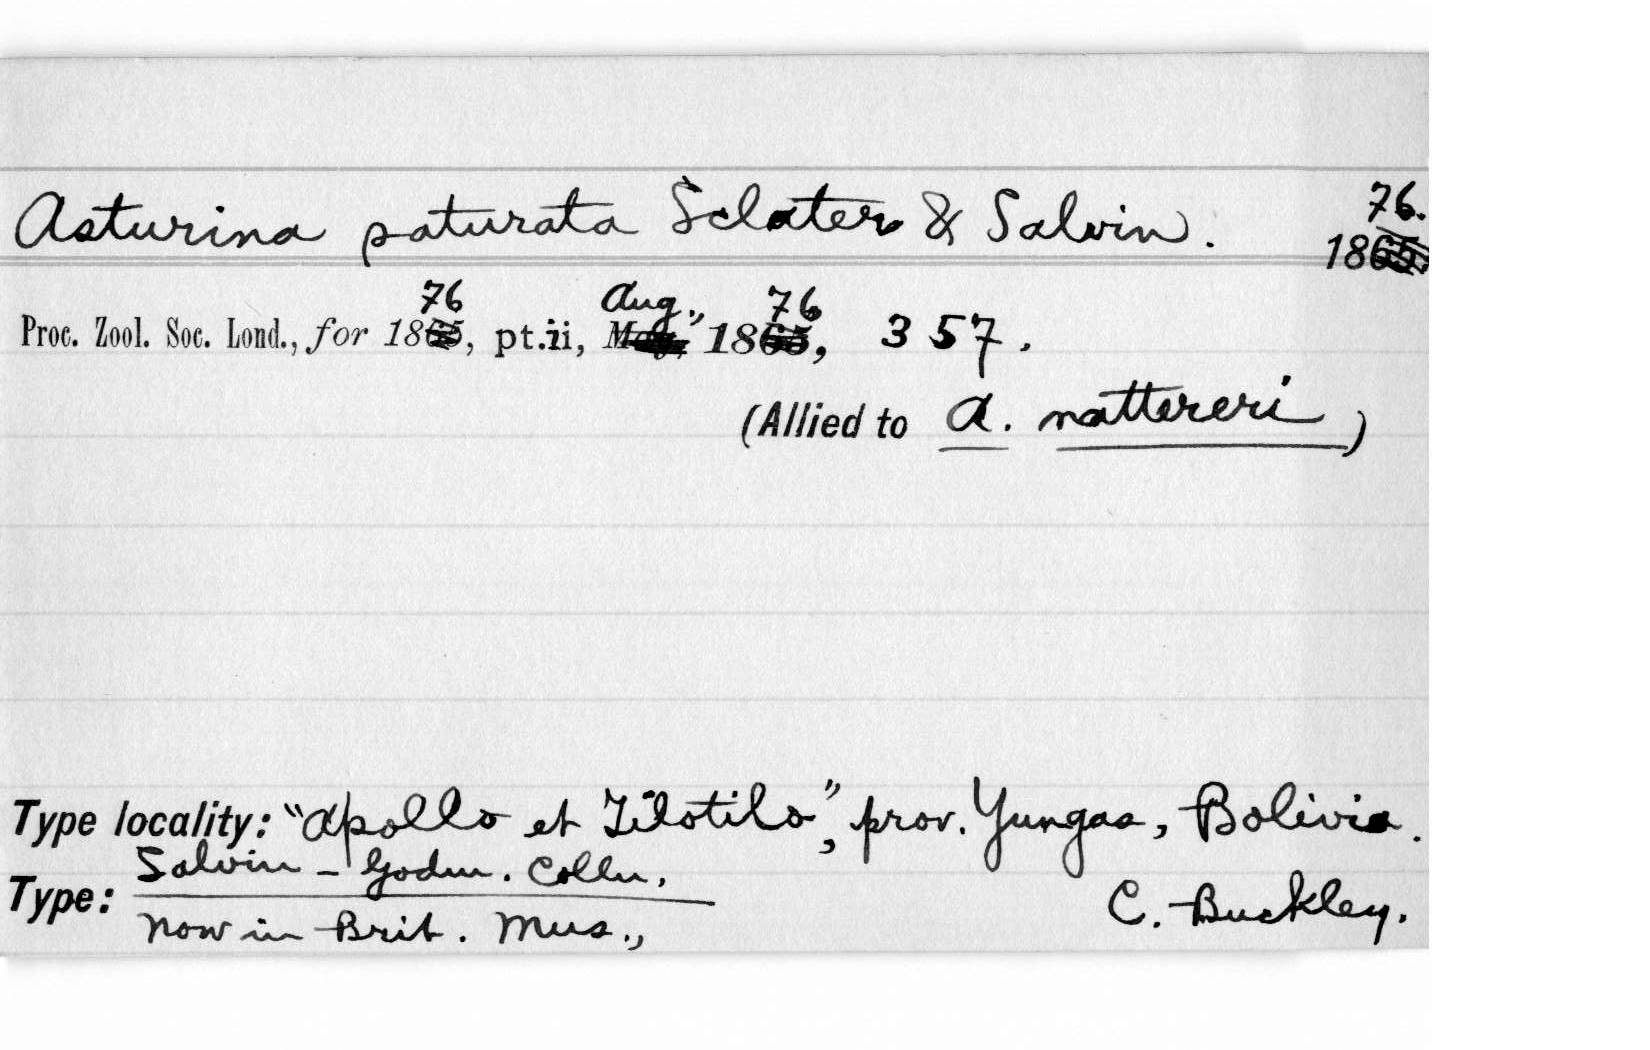 Asturina saturata Sclater & Salvin. 1876.
Proc. Zool. Soc. Lond., for 1876, pt. ii, Aug., 1876, 357.
(Allied to A. nattereri)
Type locality: "Apollo et Tilotilo", prov. Yungas, Bolivia.
Type: Salvin - Godm. Colln.
Now in Brit. Mus., C. Buckley.